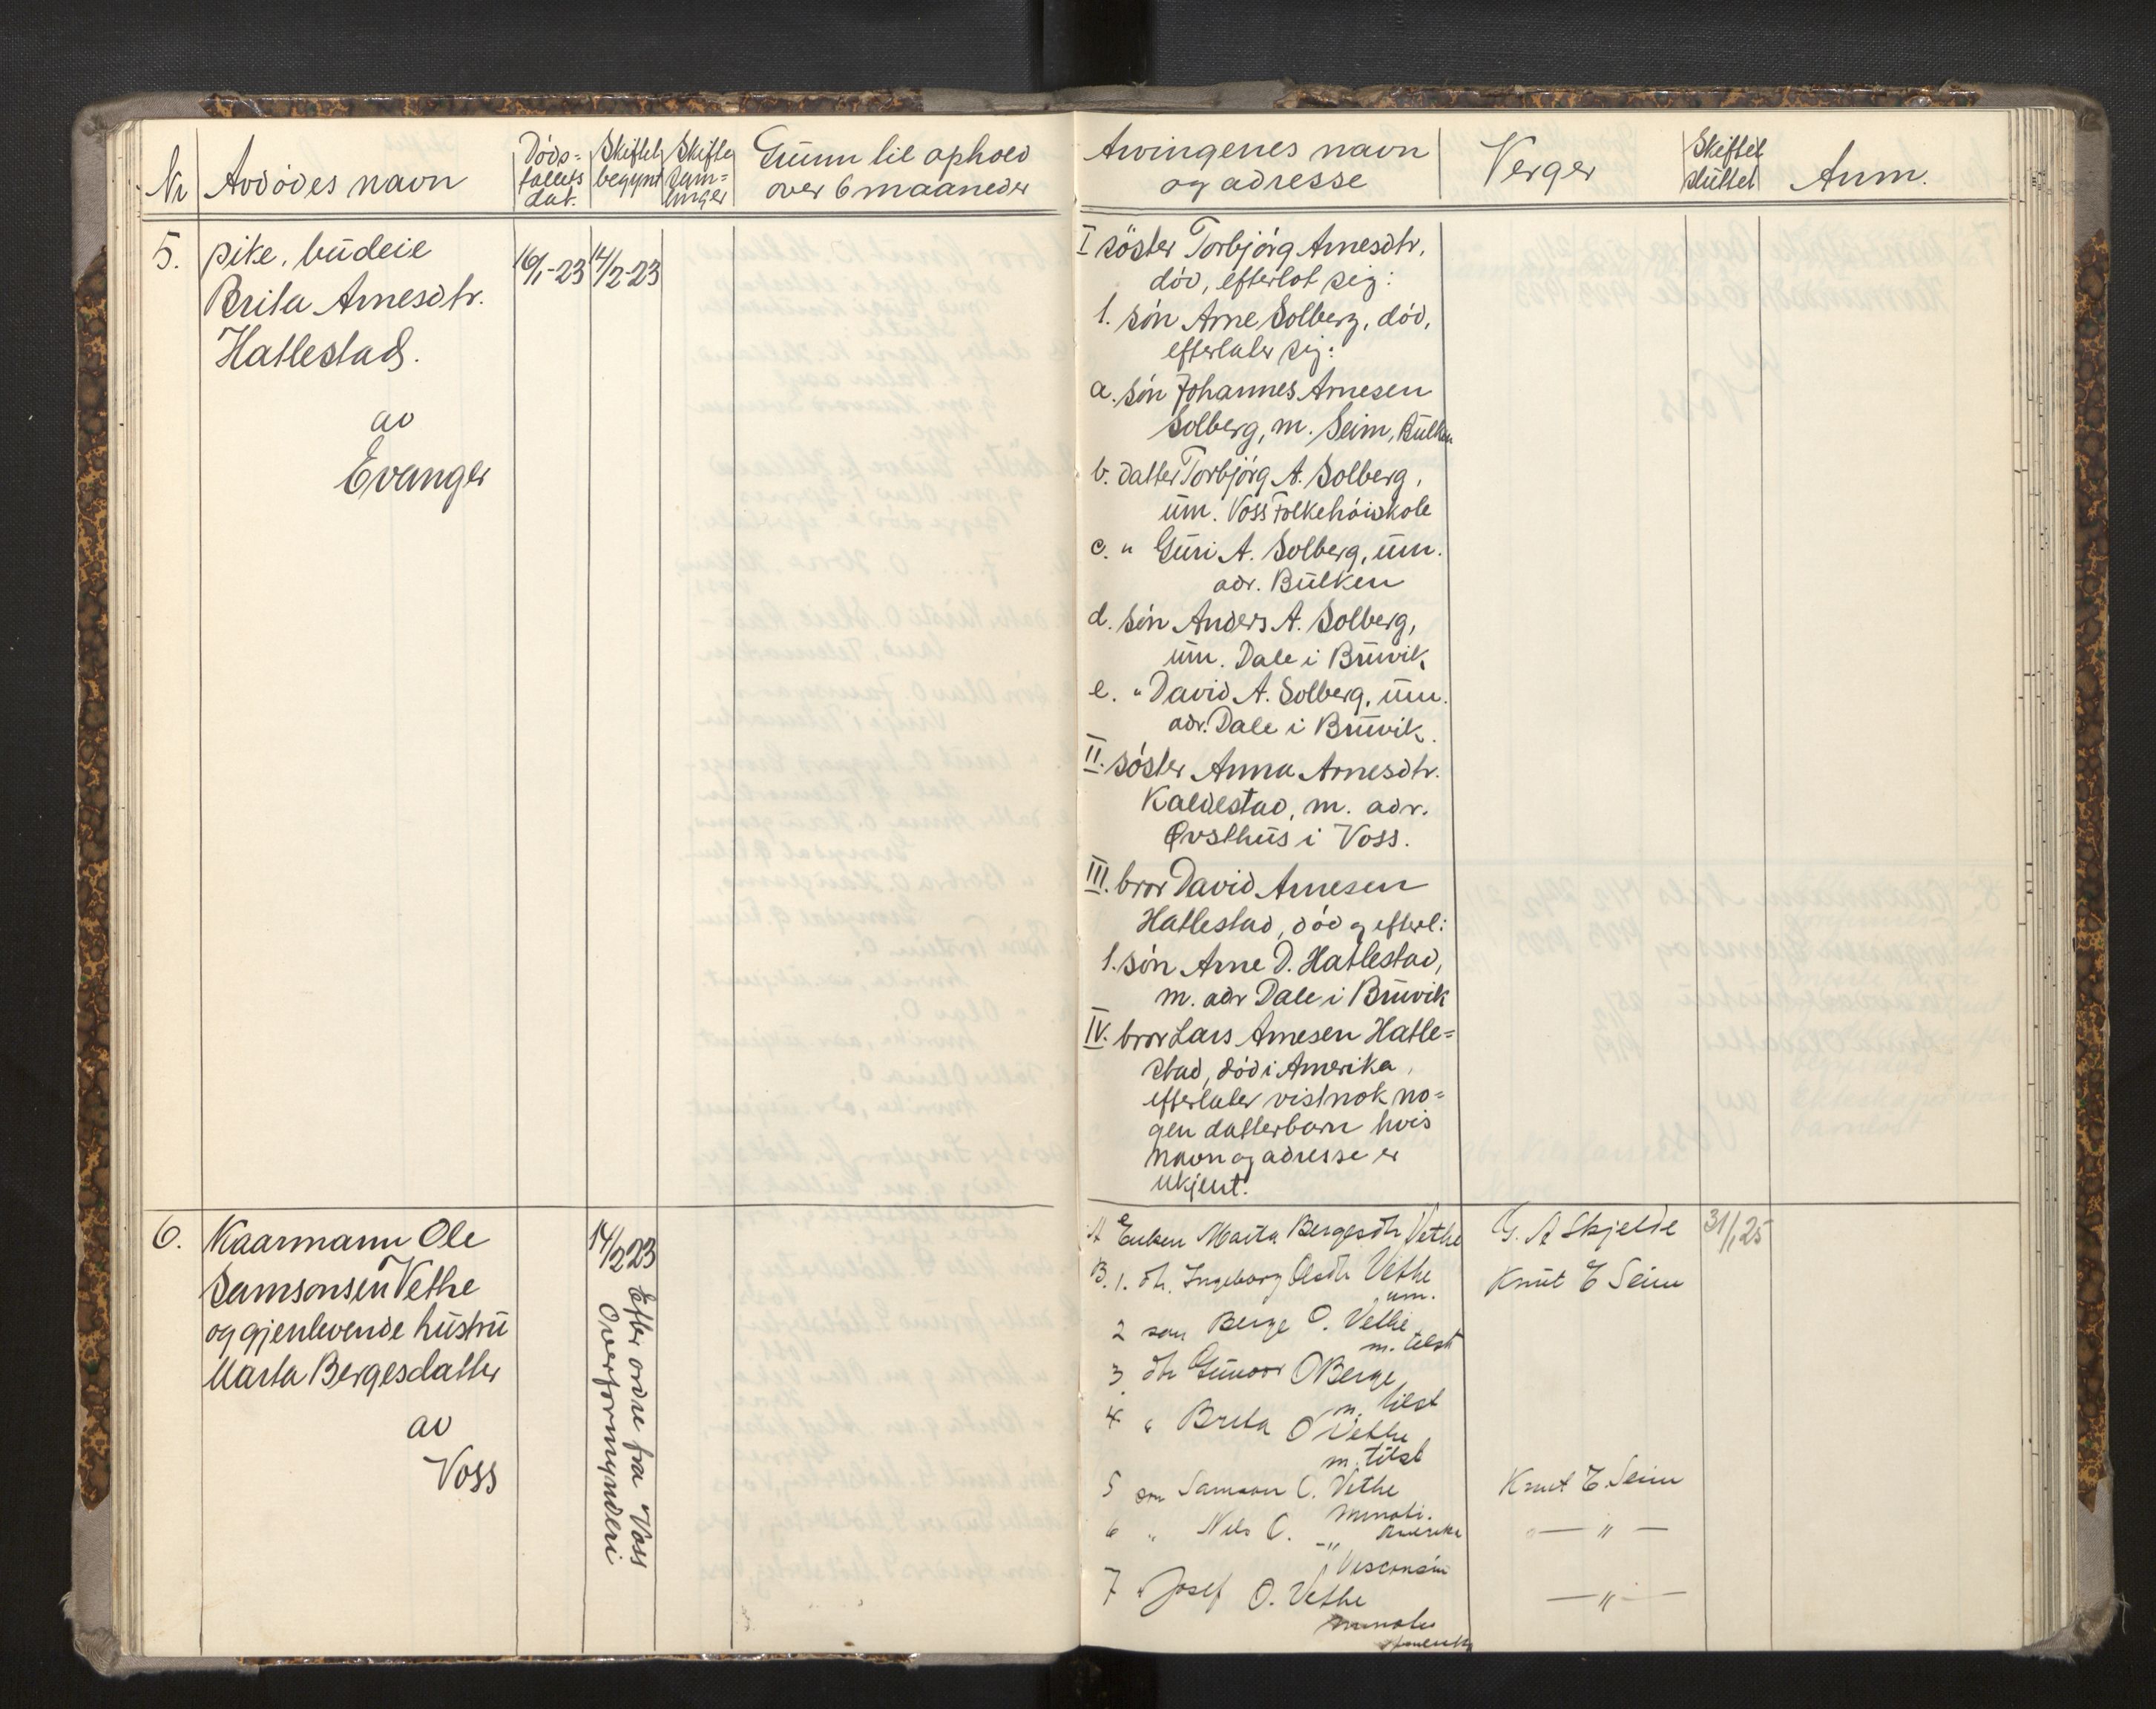 Nr
Avdødes navn
Døds-
faldets
dat.
Skiftet
begynt
Skifte
sam-
linger
Grunn til ophold
over 6 maaneder
Arvingenes navn
og adresse
Verger
Skiftet
sluttet
Anm.
5.
pike, budeie
Brita Arnesdtr.
Hatlestad.
av
Evanger
16/1-23
14/2-23
I søster Torbjörg Arnesdtr.
død, efterlot sig:
1. søn Arne Solberg, død,
efterlater sig:
a. søn Johannes Arnesen
Solberg, m. Seim, Bulken
b. datter Torbjörg A. Solberg,
um. Voss Folkehöiskole
c. " Guri A. Solberg, um.
adr. Bulken
d. søn Anders A. Solberg,
um. Dale i Bruvik
e. " David A. Solberg, um.
adr. Dale i Bruvik.
II. søster Anna Arnesdtr.
Kaldestad, m. adr.
Øvsthus i Voss.
III. bror David Arnesen
Hatlestad, död og efterl:
1. søn Arne D. Hatlestad,
m. adr Dale i Bruvik
IV. bror Lars Arnesen Hatle-
stad, død i Amerika,
efterlater vistnok no-
gen datterbarn hvis
navn og adresse er
ukjent.
6.
Kaarmann Ole
Samsonsen Vethe
og gjenlevende hustru
Marta Bergesdatter
av
Voss
14/2 23
Efter ordre fra Voss
Overformynderi
A Enken Marta Bergesdtr Vethe
G. A Skjelde
31/1 25
B. 1. dtr. Ingeborg Olsdtr Vethe
um.
Knut E Seim
2 søn Berge O. Vethe
m. tilst
3 dtr Gunvor O Berge
m. tilst
4 " Brita O Vethe
m. tilst
5 søn Samson O. Vethe
Amerika
Knut E. Seim
6 " Nils O.
-"- Visconsin
— " —
7 " Josef O. Vethe
— " —